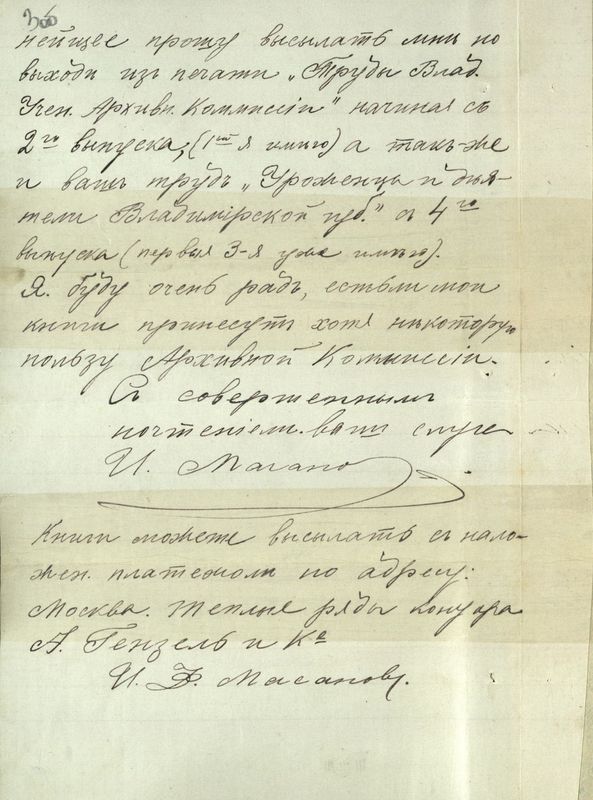 366
нѣйше прошу высылать мнѣ по
выходѣ изъ печати „Труды Влад.
Учен. Архивн. Комиссіи" начиная съ
2го выпуска, (1ый я имѣю) а такъ-же
и вашъ трудъ „Уроженцы и дѣя-
тели Владимірской губ." съ 4го
выпуска (первые 3-я уже имѣю).
Я буду очень радъ, есть-ли мои
книги принесутъ хотя нѣкоторую
пользу Архивной Комиссіи.
Съ совершеннымъ
почтеніемъ вашъ слуга
И. Масано
Книги можете высылать съ нало-
жен. платежомъ по адресу:
Москва. Теплые ряды контора
А. Гензель и Ко
И. Ф. Масанову.